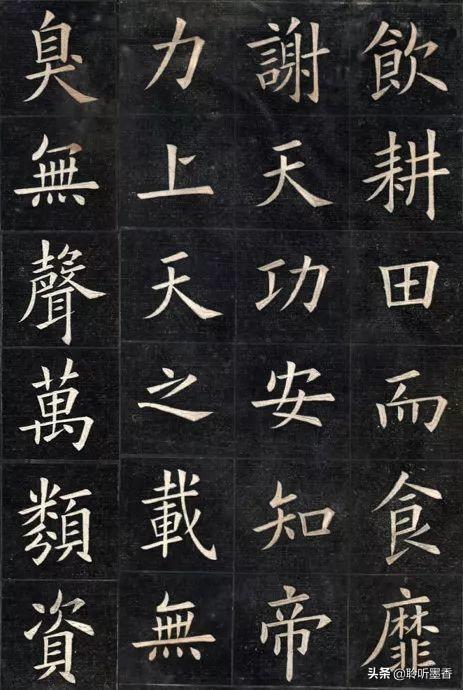 飲耕田而食靡
謝天功安知帝
力上天之載無
臭無聲萬類資
头条 @聆听墨香